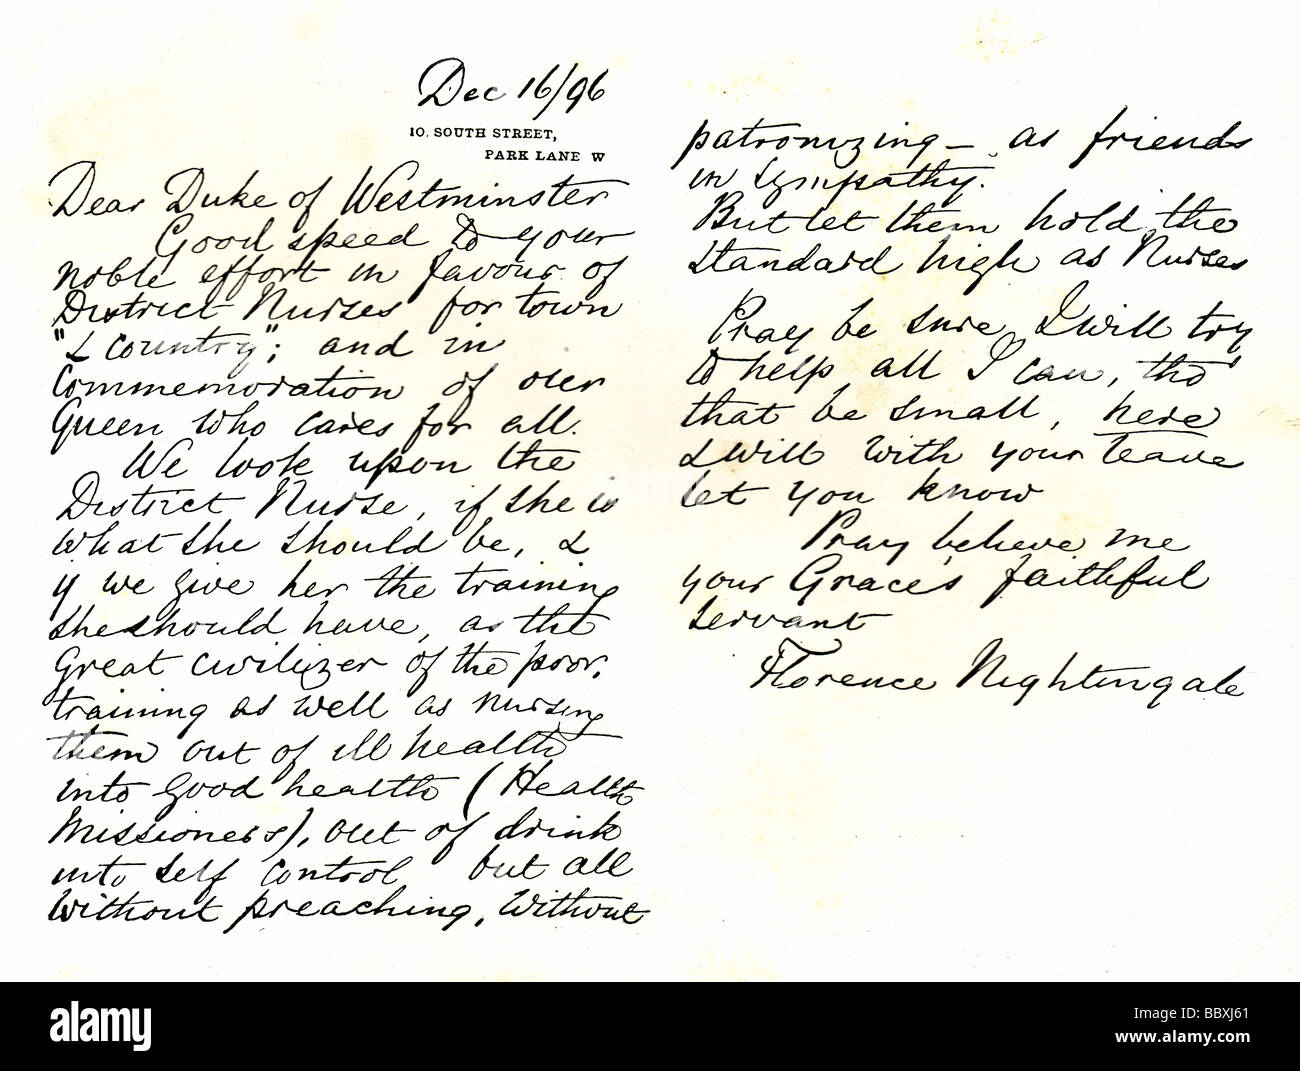 Dec 16/96
10. SOUTH STREET,
PARK LANE W
Dear Duke of Westminster
Good speed to your
noble effort in favour of
District Nurses for town
"& country"; and in
Commemoration of our
Queen who cares for all.
We look upon the
District Nurse, if she is
what she should be, &
if we give her the training
she should have, as the
great civilizer of the poor,
training as well as nursing
them out of ill health
into good health (Health
Missioners), out of drink
into self control but all
without preaching, without
patronizing - as friends
in sympathy.
But let them hold the
standard high as Nurses
Pray be sure I will try
to help all I can, tho'
that be small, here
& will with your leave
let you know
Pray believe me
your Grace's faithful
servant
Florence Nightingale
alamy
alamy
Image ID: BBXJ61
www.alamy.com